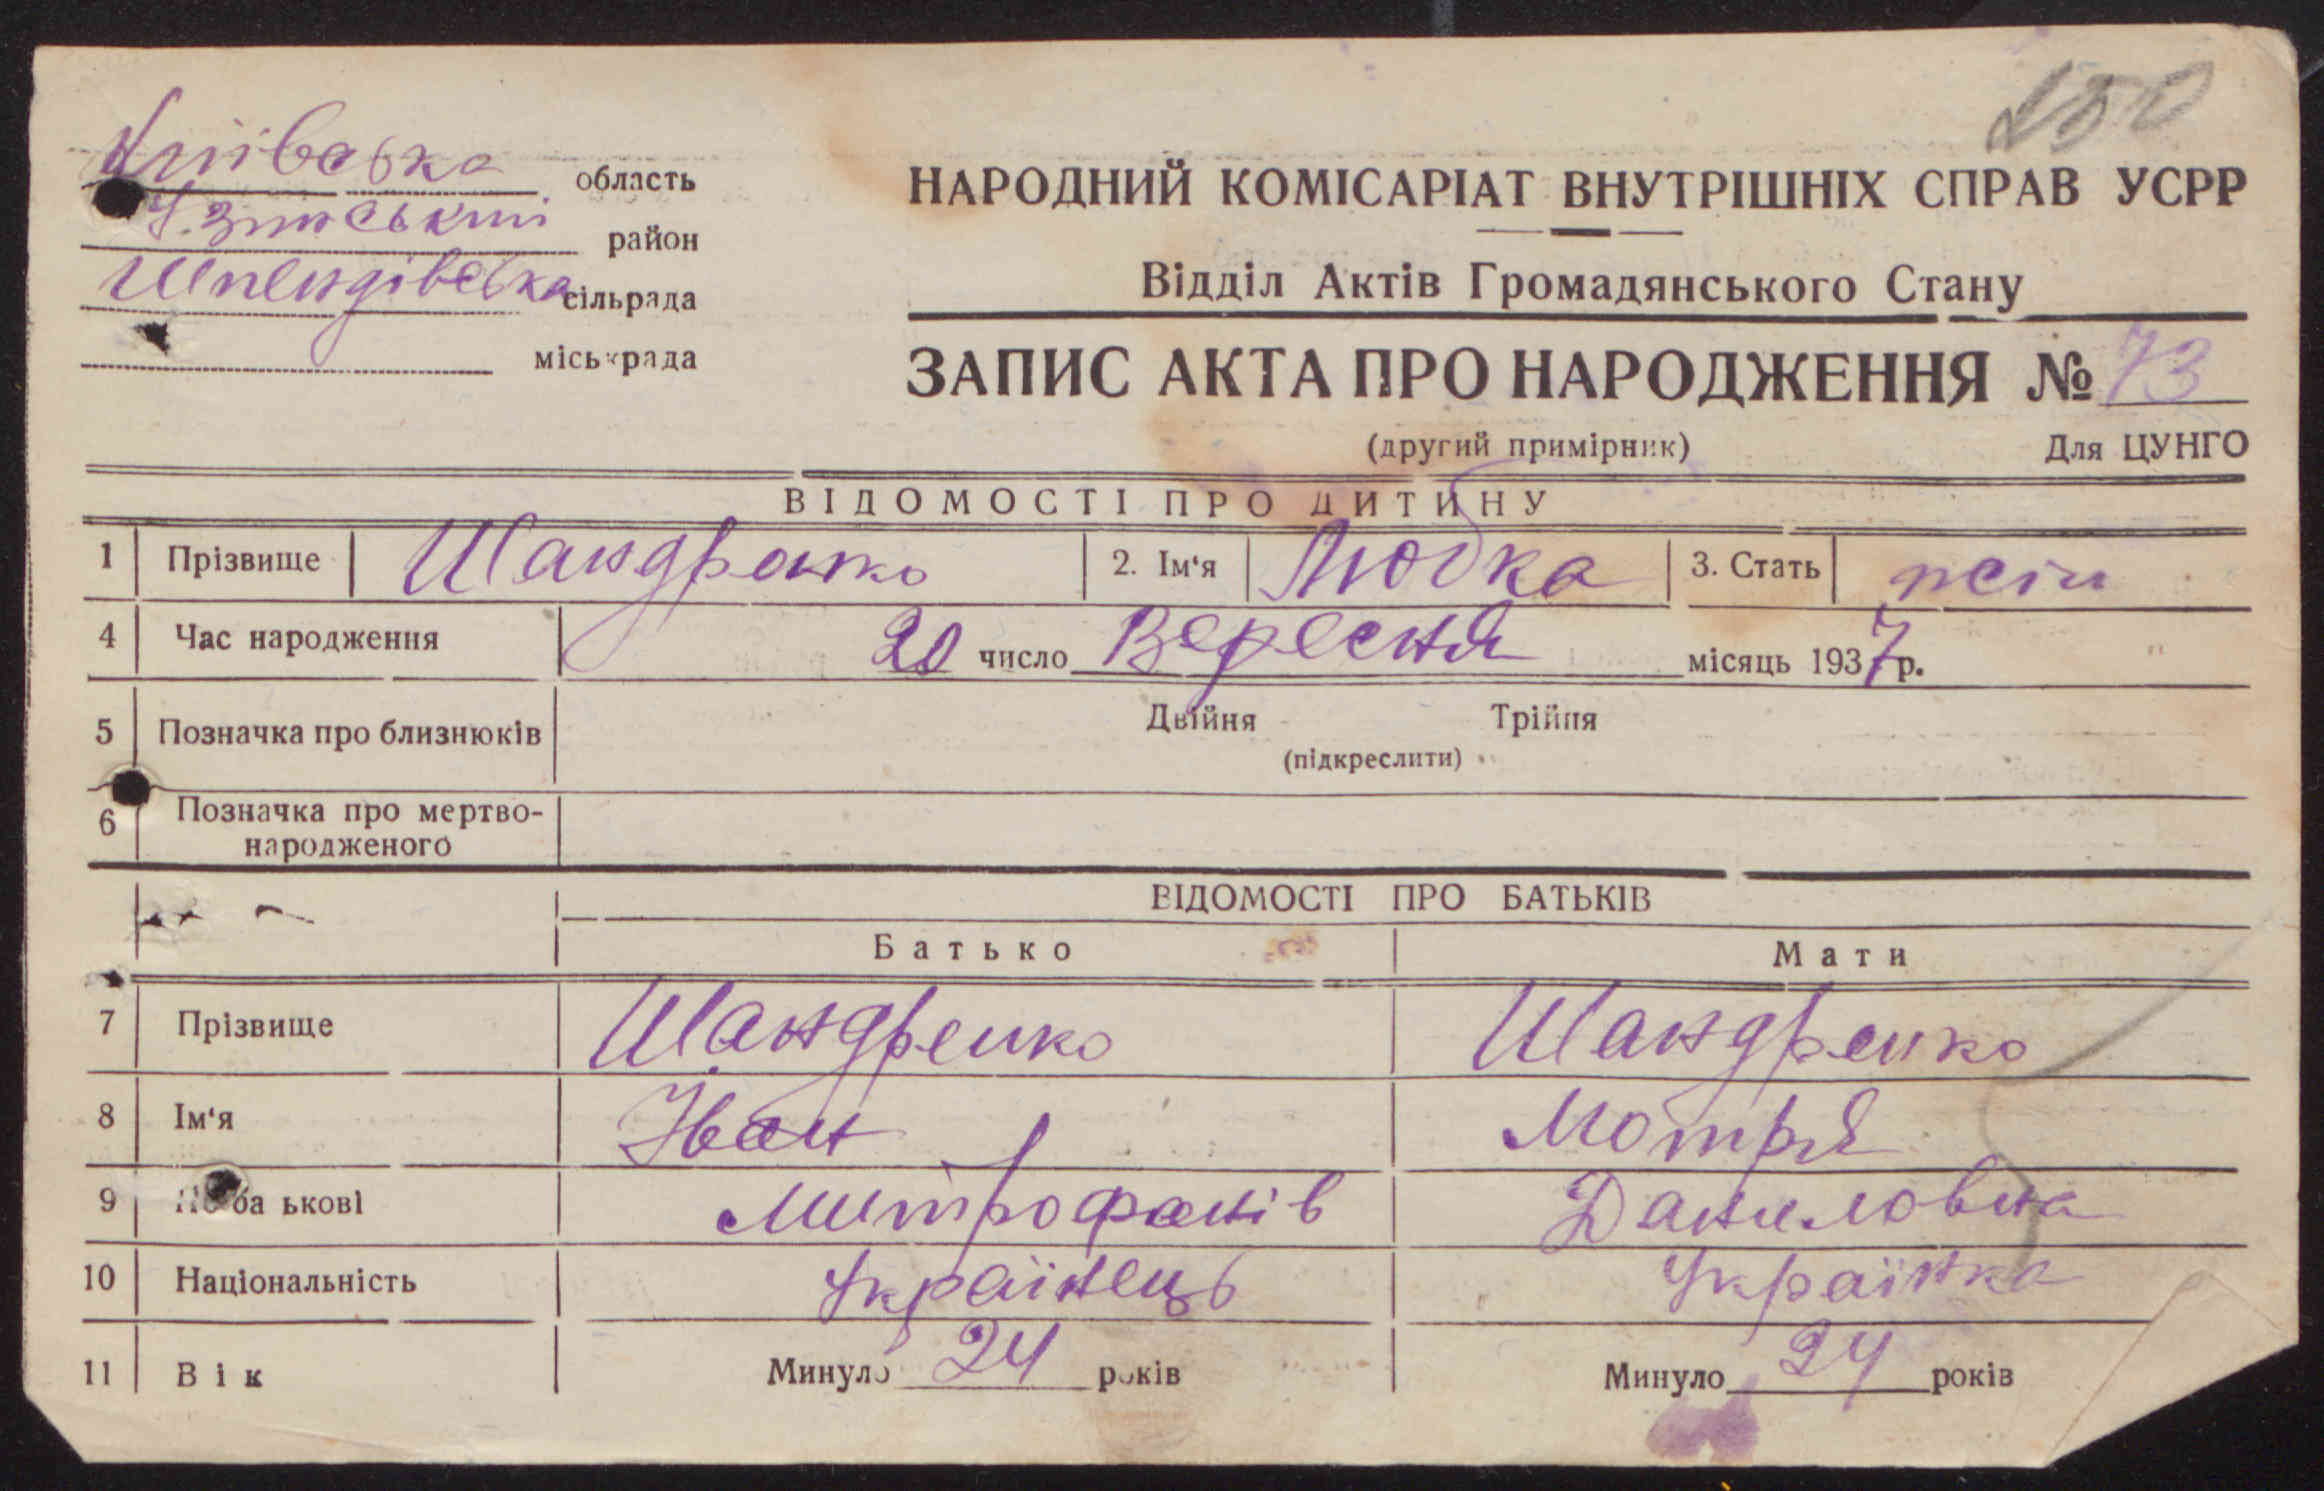 250
Київська область
Узинський район
Шпендівська сільрада
міськрада
НАРОДНИЙ КОМІСАРІАТ ВНУТРІШНІХ СПРАВ УСРР
Відділ Актів Громадянського Стану
ЗАПИС АКТА ПРО НАРОДЖЕННЯ № 73
(другий примірник) Для ЦУНГО
ВІДОМОСТІ ПРО ДИТИНУ
1 Прізвище Шандренко 2. Ім'я Любка 3. Стать жін
4 Час народження 20 число Вересня місяць 1937 р.
5 Позначка про близнюків Двійня Трійня
(підкреслити)
6 Позначка про мертво-
народженого
ВІДОМОСТІ ПРО БАТЬКІВ
Батько Мати
7 Прізвище Шандренко Шандренко
8 Ім'я Іван Мотря
9 По ба ькові Митрофанів Даниловна
10 Національність Українець Українка
11 Вік Минуло 24 років Минуло 24 років